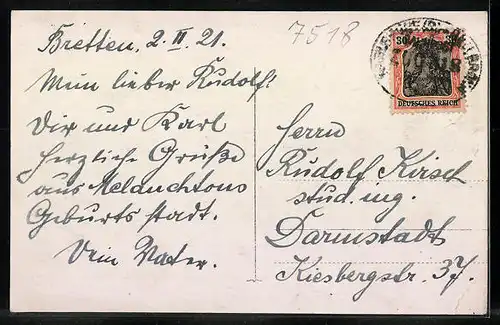 7518
30 30
DEUTSCHES REICH
Bretten, 2. II. 21.
Mein lieber Rudolf!
Dir und Karl
herzliche Grüße
aus Melanchtons
Geburtsstadt.
Dein Vater.
Herrn
Rudolf Kirsch
stud. ing.
Darmstadt
Kiesbergstr. 37.